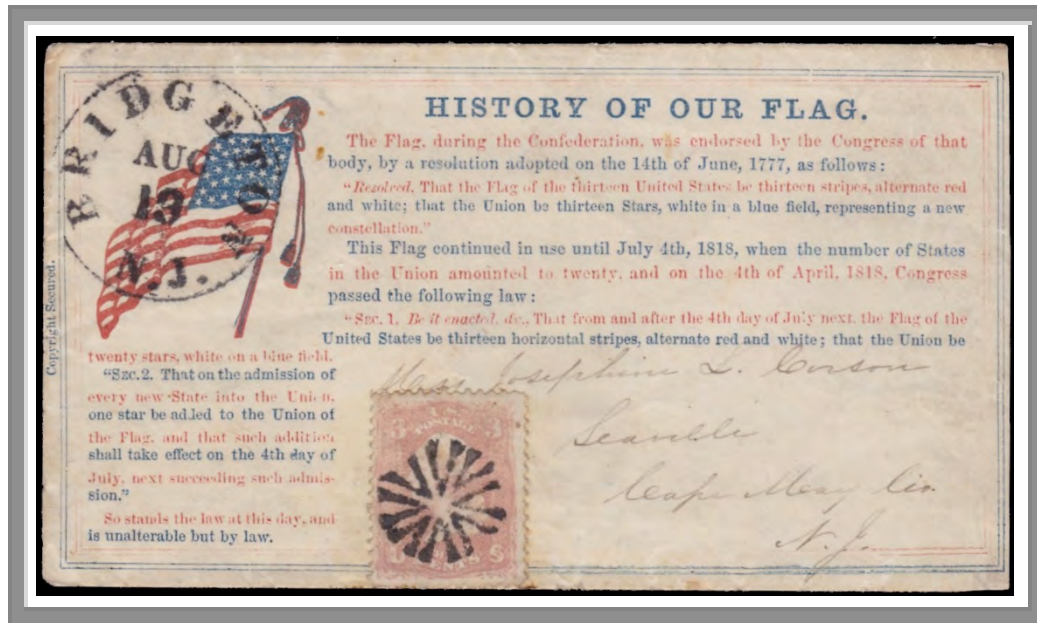 BRIDGETON
AUG
19
N.J.
HISTORY OF OUR FLAG.
The Flag, during the Confederation, was endorsed by the Congress of that
body, by a resolution adopted on the 14th of June, 1777, as follows:
"Resolved, That the Flag of the thirteen United States be thirteen stripes, alternate red
and white; that the Union be thirteen Stars, white in a blue field, representing a new
constellation."
This Flag continued in use until July 4th, 1818, when the number of States
in the Union amounted to twenty, and on the 4th of April, 1818, Congress
passed the following law:
"Sec. 1. Be it enacted, &c., That from and after the 4th day of July next, the Flag of the
United States be thirteen horizontal stripes, alternate red and white; that the Union be
twenty stars, white on a blue field.
"Sec. 2. That on the admission of
every new State into the Union,
one star be added to the Union of
the Flag, and that such addition
shall take effect on the 4th day of
July, next succeeding such admis-
sion."
So stands the law at this day, and
is unalterable but by law.
Copyright Secured.
Miss Josephine L. Corson
Seaville
Cape May Co.
N.J.
3 U.S. 3
POSTAGE
CENTS